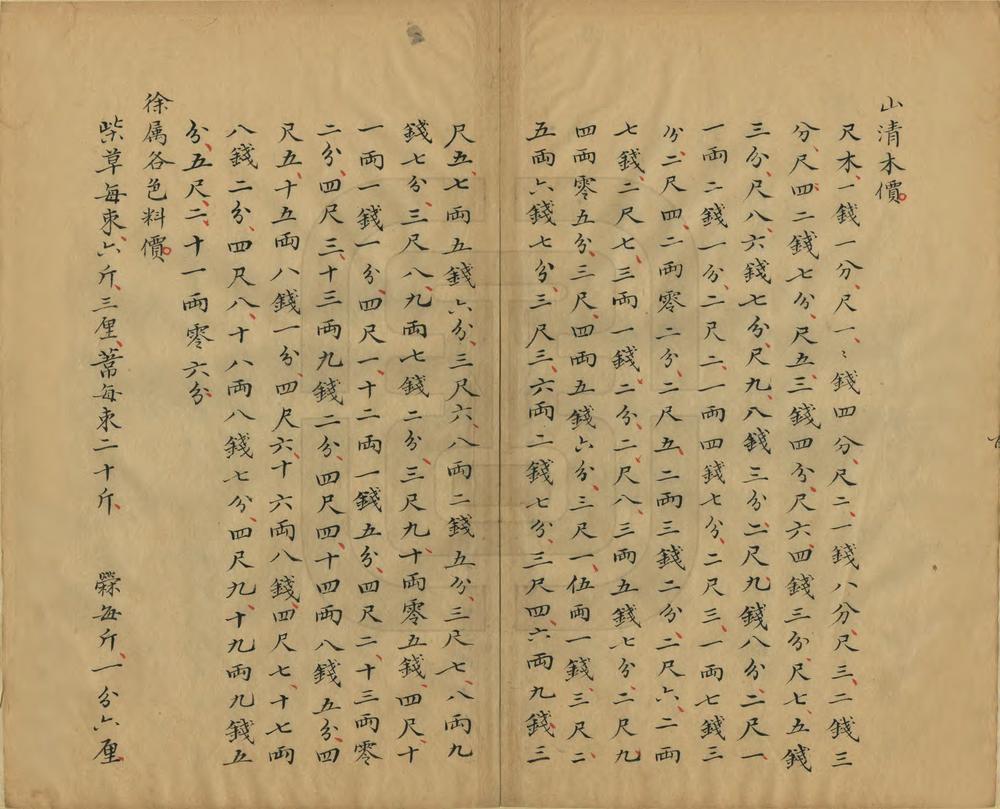 山清木價
尺木一錢一分尺一〻錢四分尺二一錢八分尺三二錢三
分尺四二錢七分尺五三錢四分尺六四錢三分尺七五錢
三分尺八六錢七分尺九八錢三分二尺九錢八分二尺一
一両二錢一分二尺二一両四錢七分二尺三一両七錢三
分二尺四二両零二分二尺五二両三錢二分二尺六二両
七錢二尺七三両一錢二分二尺八三両五錢七分二尺九
四両零五分三尺四両五錢六分三尺一伍両一錢三尺二
五両六錢七分三尺三六両二錢七分三尺四六両九錢三
尺五七両五錢六分三尺六八両二錢五分三尺七八両九
錢七分三尺八九両七錢二分三尺九十両零五錢四尺十
一両一錢一分四尺一十二両一錢五分四尺二十三両零
二分四尺三十三両九錢二分四尺四十四両八錢五分四
尺五十五両八錢一分四尺六十六両八錢四尺七十七両
八錢二分四尺八十八両八錢七分四尺九十九両九錢五
分五尺二十一両零六分
徐属各色料價
柴草每束六斤三厘蔕每束二十斤 每斤一分六厘